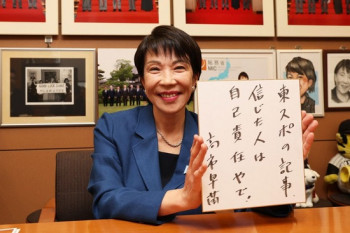 東スポの記事
信じた人は
自己責任やで!
高市早苗